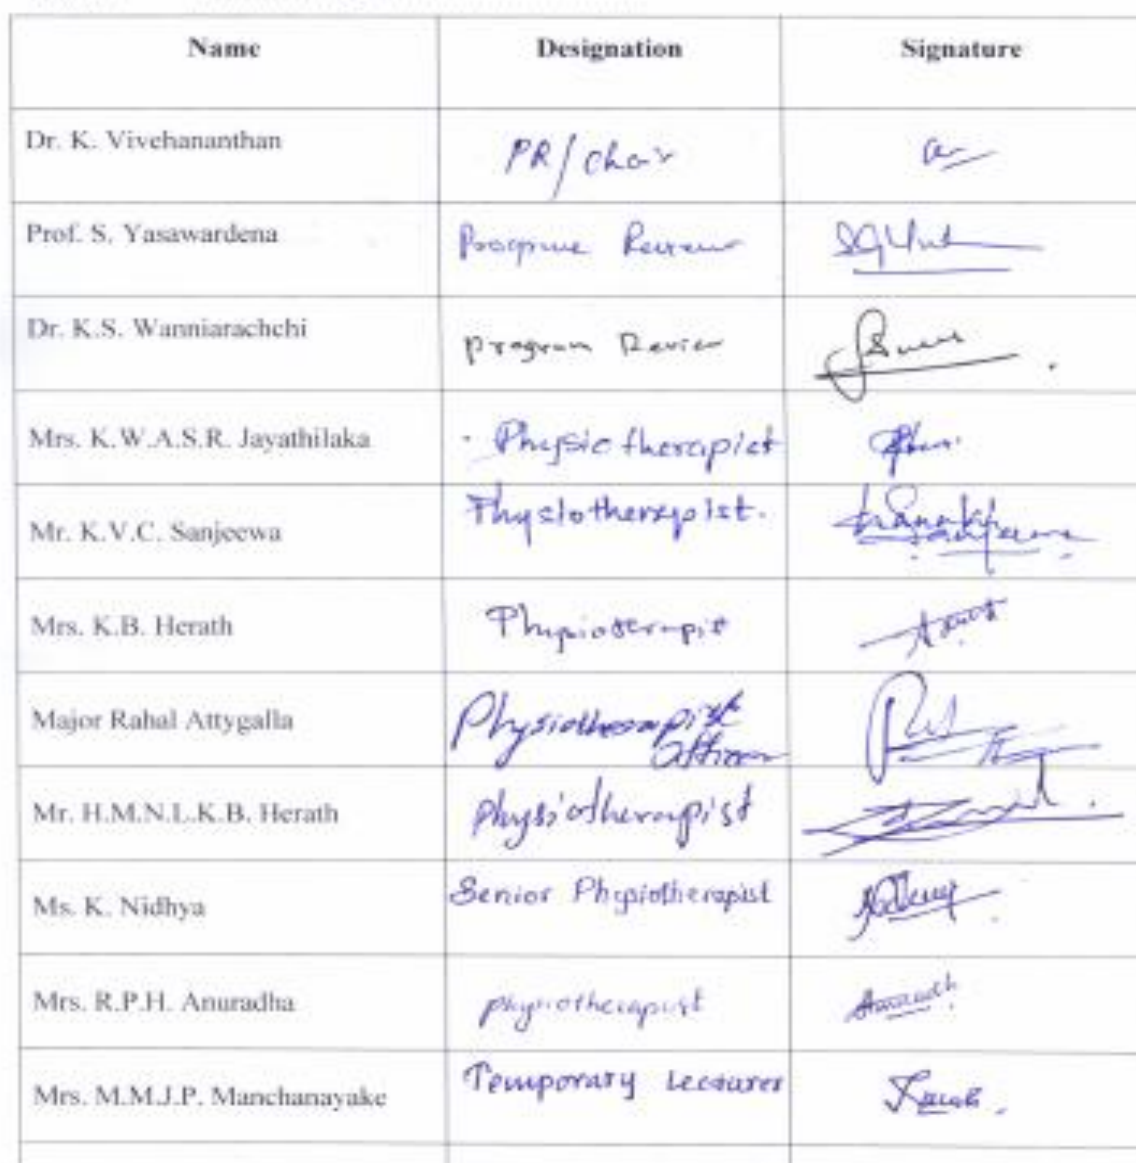 Name Designation Signature
Dr. K. Vivehananthan PR/chair
Prof. S. Yasawardena
Dr. K.S. Wanniarachchi program
Mrs. K.W.A.S.R. Jayathilaka Physiotherapist
Mr. K.V.C. Sanjeewa Physiotherapist.
Mrs. K.B. Herath Physiotherapist
Major Rahal Attygalla Physiotherapist
officer
Mr. H.M.N.L.K.B. Herath physiotherapist
Ms. K. Nidhya Senior Physiotherapist
Mrs. R.P.H. Anuradha physiotherapist
Mrs. M.M.J.P. Manchanayake Temporary Lecturer